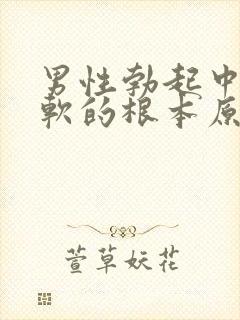 男性勃起中
軟的根本原
萱草妖花